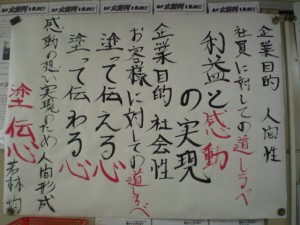 企業目的 人間性
社員に対しての道しるべ
利益と感動
の実現
企業目的 社会性
お客様に対しての道しるべ
塗って伝える心
塗って伝わる心
感動の想い実現のため人間形成
塗伝心
若林均